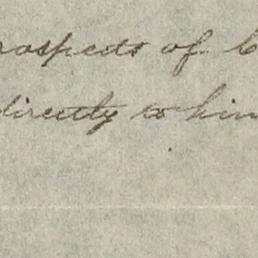 rospects of
directly to him